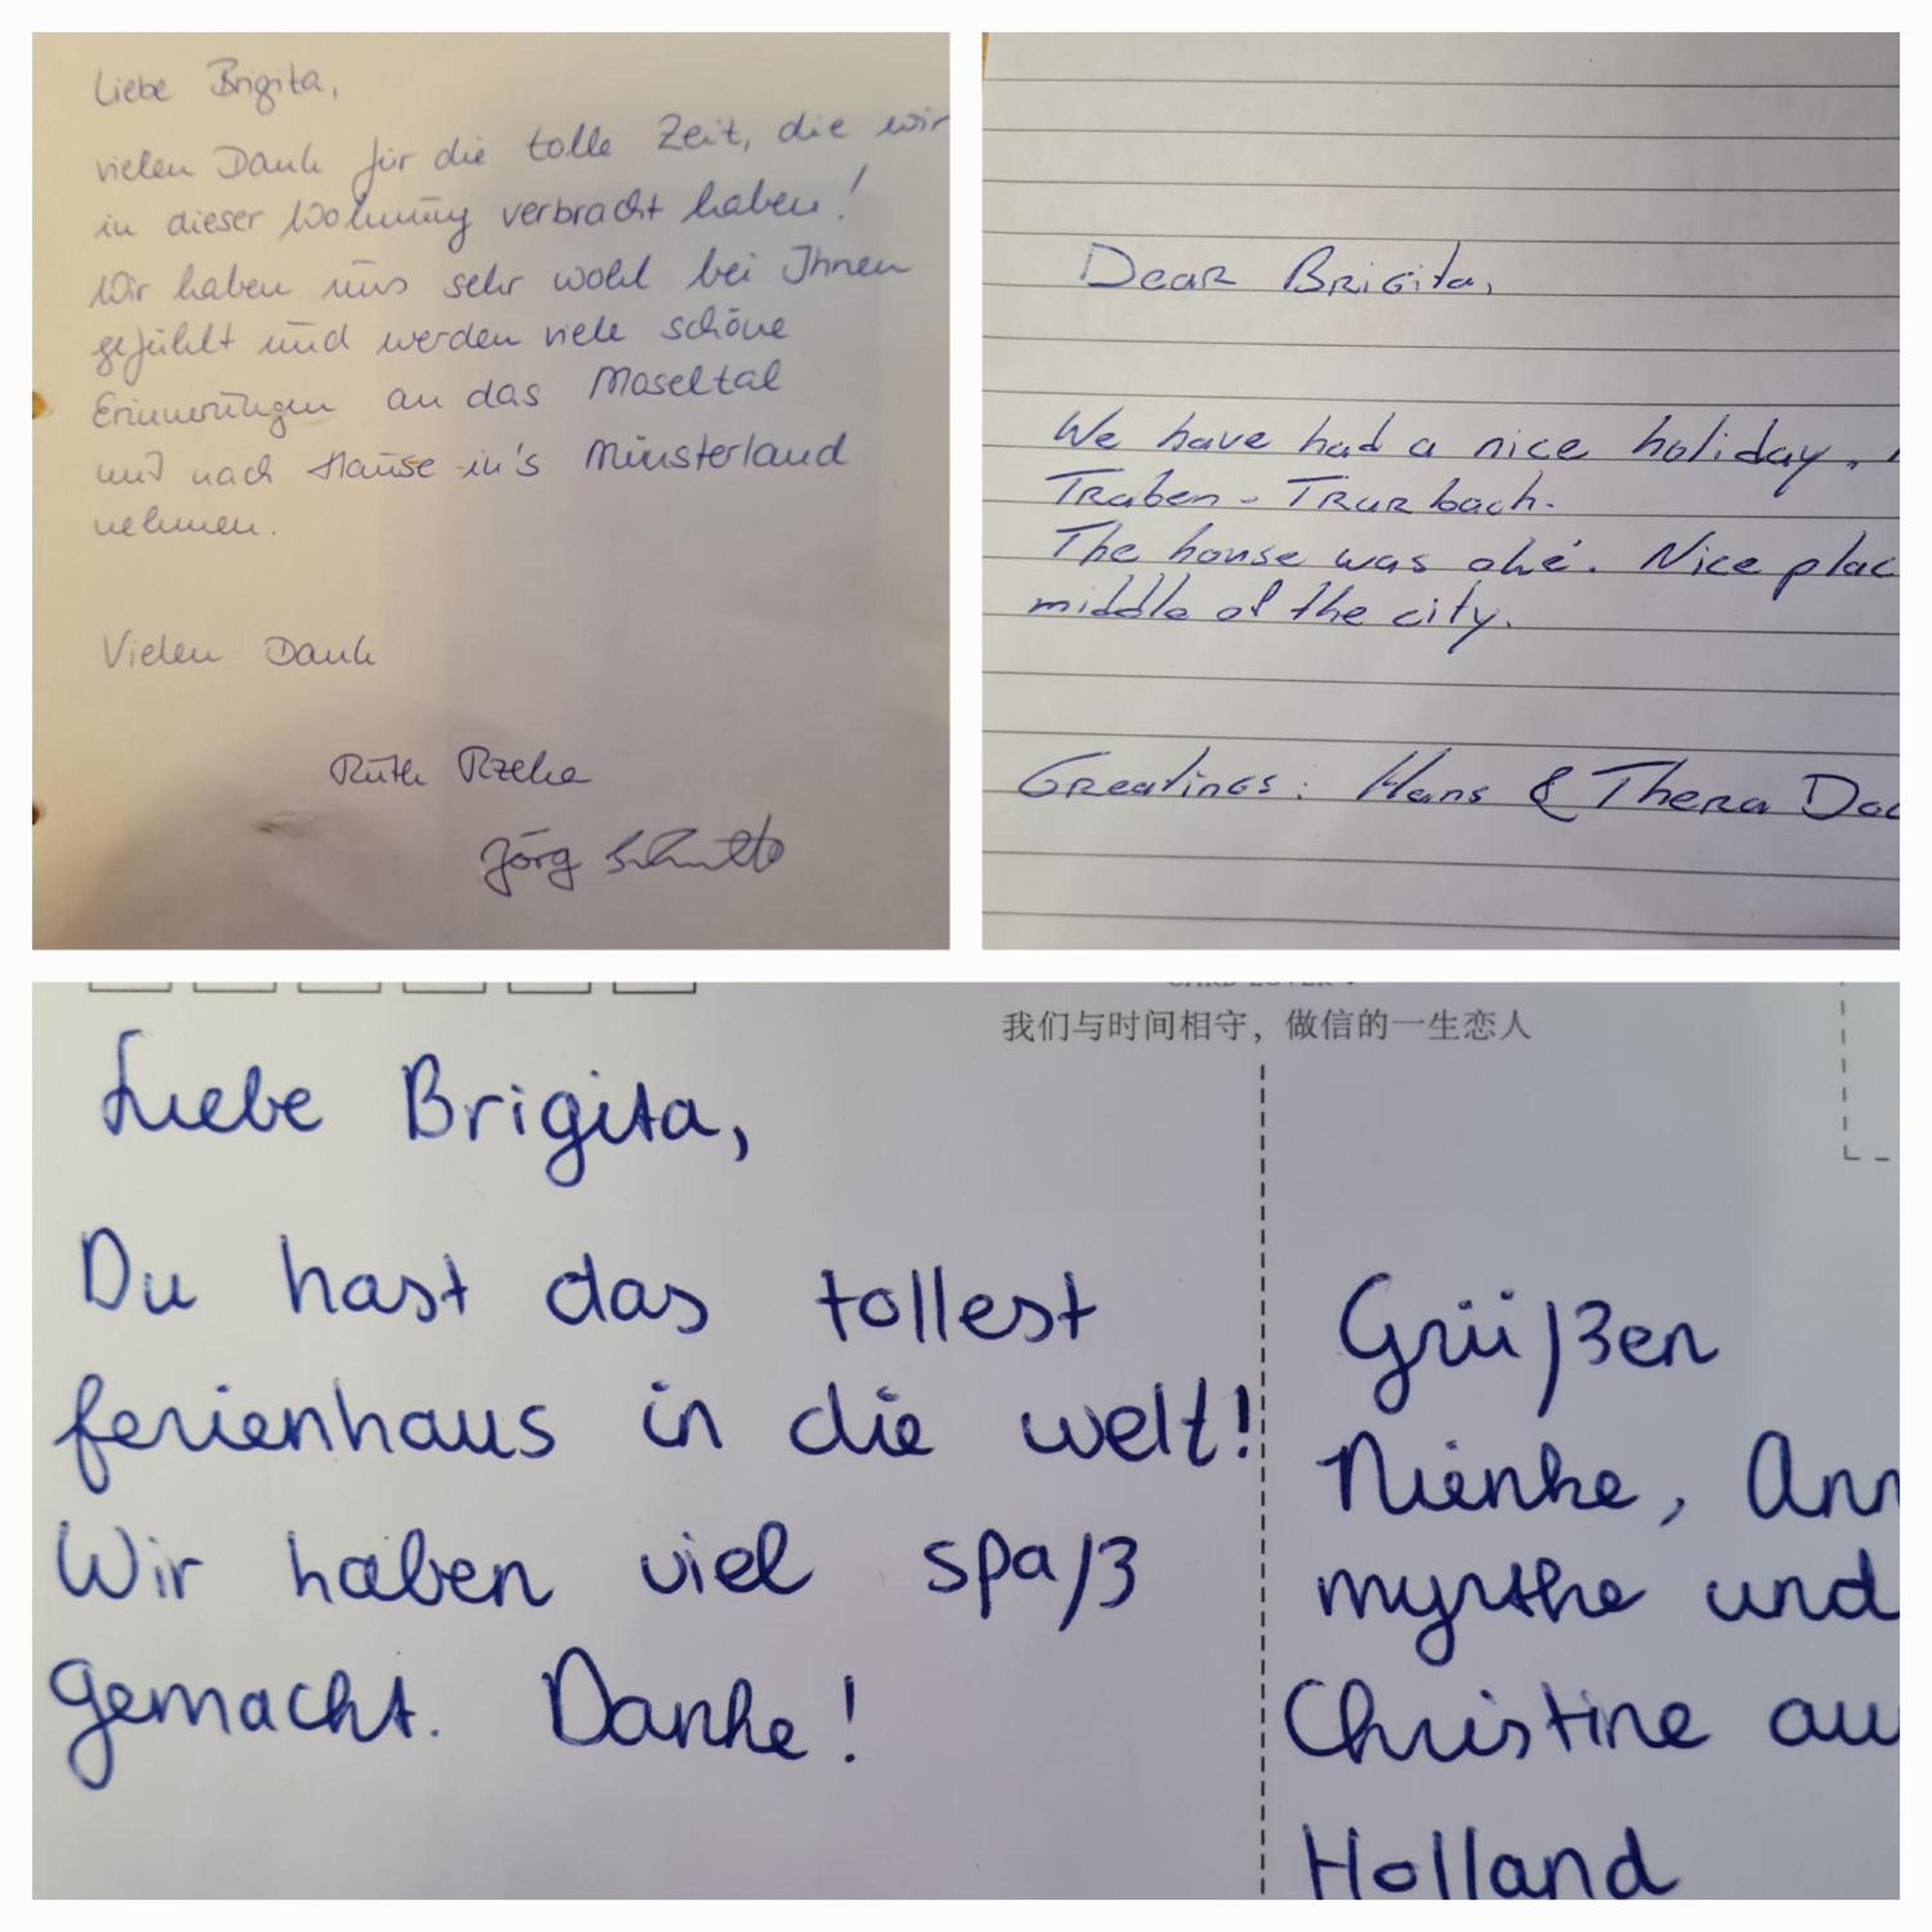 Liebe Brigita,
vielen Dank für die tolle Zeit, die wir
in dieser Wohnung verbracht haben!
Wir haben uns sehr wohl bei Ihnen
gefühlt und werden viele schöne
Erinnerungen an das Moseltal
mit nach Hause in's Münsterland
nehmen.
Vielen Dank
Ruth
Jörg
Dear Brigita,
We have had a nice holiday.
Traben-Trurbach.
The house was oké. Nice plac
middle of the city.
Greatings: Hans & Thera Doc
CARD LOVER
我们与时间相守，做信的一生恋人
Liebe Brigita,
Du hast das tollest
ferienhaus in die welt!
Wir haben viel spaß
gemacht. Danke!
Grüßen
Nienke, Ann
myrthe und
Christine au
Holland